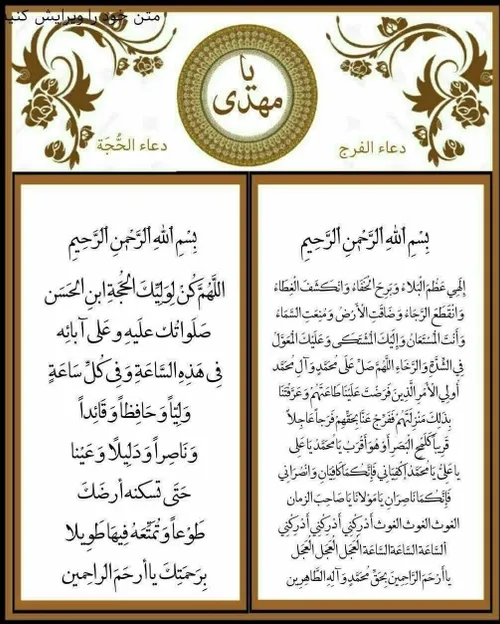 متن خود را ویرایش کنید
یا مهدی
دعاء الفرج
دعاء الحُجَة
بِسْمِ اللهِ الرَّحْمنِ الرَّحِيمِ
إلهِي عَظُمَ البَلاءُ وَبَرِحَ الخَفَاءُ وَانْكَشَفَ الغِطَاءُ
وَانْقَطَعَ الرَّجَاءُ وَضَاقَتِ الأرْضُ وَمُنِعَتِ السَّمَاءُ
وَأنْتَ المُسْتَعَانُ وَإلَيْكَ المُشْتَكَى وَعَلَيْكَ المُعَوَّلُ
فِي الشِّدَّةِ وَالرَّخَاءِ اللَّهُمَّ صَلِّ عَلَى مُحَمَّدٍ وَآلِ مُحَمَّدٍ
أولِي الأمْرِ الَّذِينَ فَرَضْتَ عَلَيْنَا طَاعَتَهُمْ وَعَرَّفْتَنَا
بِذلِكَ مَنْزِلَتَهُمْ فَفَرِّجْ عَنَّا بِحَقِّهِمْ فَرَجاً عَاجِلاً
قَرِيباً كَلَمْحِ البَصَرِ أوْ هُوَ أقْرَبُ يَا مُحَمَّدُ يَا عَلِى
يا عَلِىُّ يَا مُحَمَّدُ اكْفِيَانِي فَإنَّكُمَا كَافِيَانِ وَانْصُرَانِي
فَإنَّكُمَا نَاصِرَانِ يَا مَوْلانَا يَا صَاحِبَ الزمان
الغوث الغوث الغوث أدْرِكْنِي أدْرِكْنِي أدْرِكْنِي
السَّاعَةَ السَّاعَةَ السَّاعَةَ العَجَلَ العَجَلَ العَجَلَ
يا أرْحَمَ الرَّاحِمِينَ بِحَقِّ مُحَمَّدٍ وَآلِهِ الطَّاهِرِينَ
بِسْمِ اللهِ الرَّحْمنِ الرَّحِيمِ
اللَّهُمَّ كُنْ لِوَلِيِّكَ الحُجَّةِ ابنِ الحَسَن
صَلَواتُكَ علَيهِ و عَلى آبائِهِ
فِي هَذِهِ السَّاعَةِ وَفِي كُلِّ سَاعَةٍ
وَلِيّاً وَحَافِظاً وَ قَائِداً
وَنَاصِراً وَدَلِيلًا وَعَيْنا
حَتَى تسكنه أرضَكَ
طَوْعاً وَتُمَتِّعَهُ فِيهَا طَوِيلا
بِرَحمَتِكَ يا أرحَمَ الراحِمين